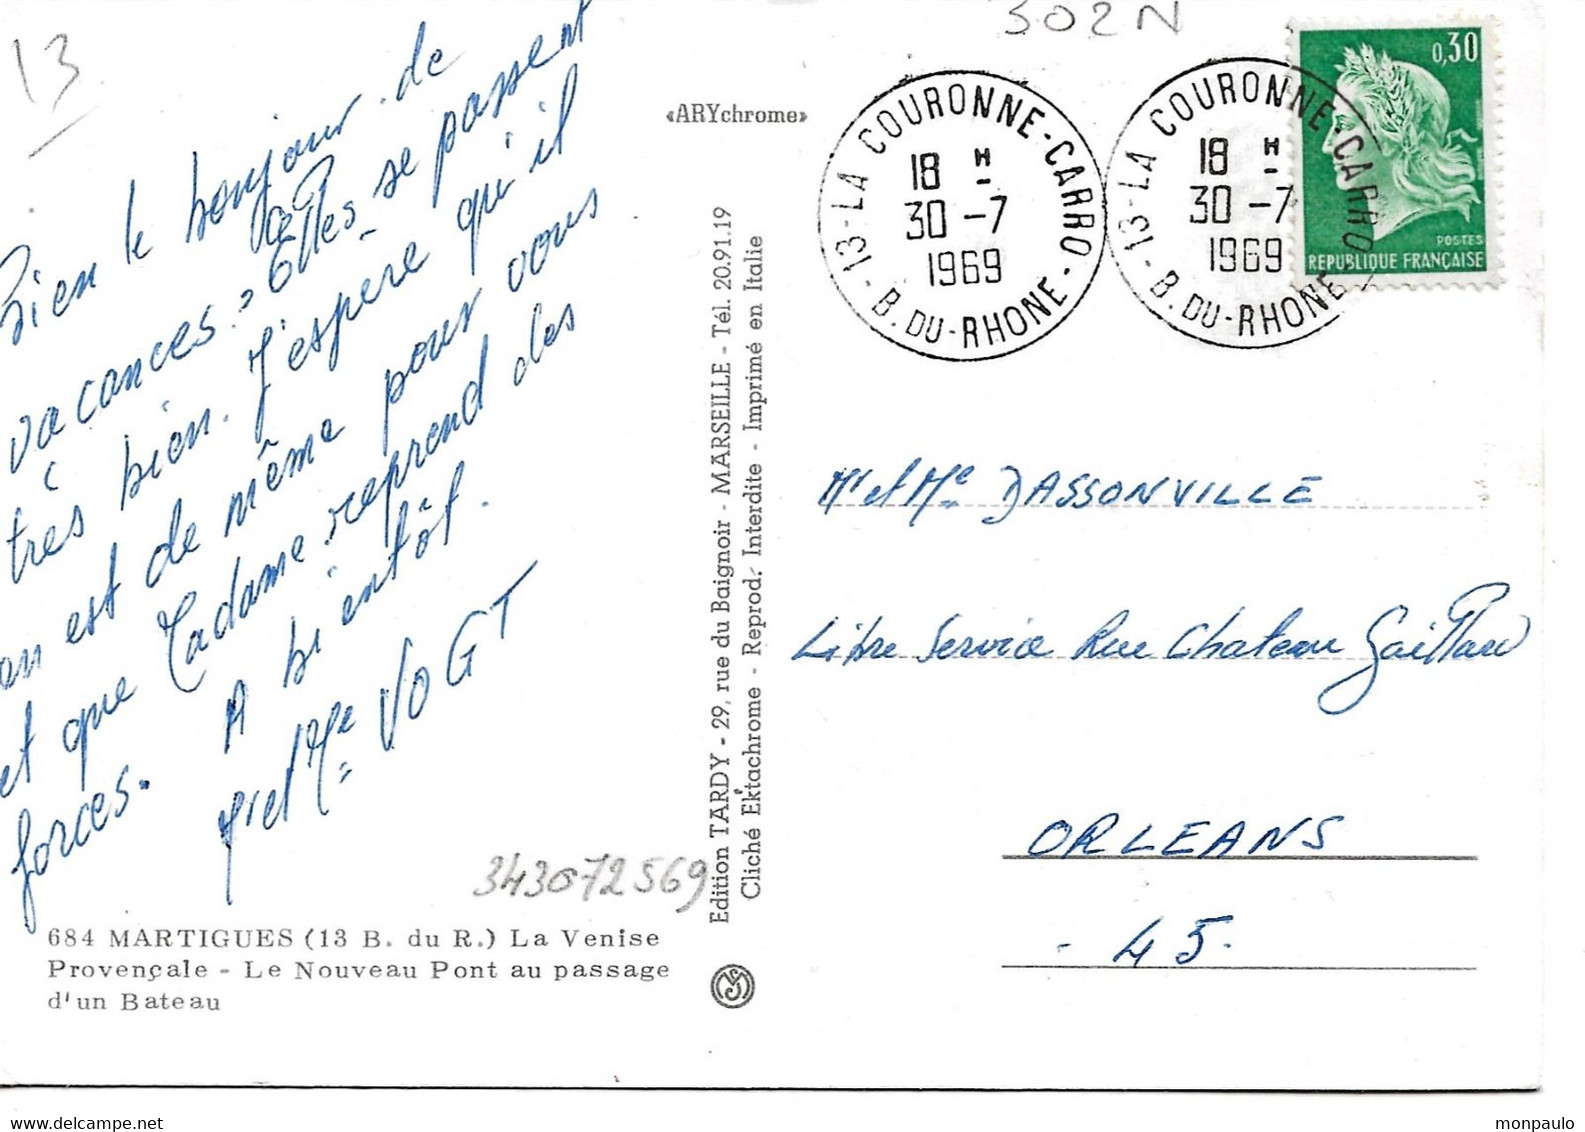 13
302N
Bien le bonjour de
vacances. Elles se passent
très bien. J'espère qu'il
en est de même pour vous
et que Madame reprend des
forces. A bientôt.
Mr et Me VOGT
343072569
684 MARTIGUES (13 B. du R.) La Venise
Provençale - Le Nouveau Pont au passage
d'un Bateau
«ARYchrome»
Edition TARDY - 29, rue du Baignoir - MARSEILLE - Tél. 20.91.19
Cliché Ektachrome - Reprod. Interdite - Imprimé en Italie
13-LA COURONNE-CARRO - B. DU-RHONE -
18 H
30 -7
1969
13-LA COURONNE-CARRO - B. DU-RHONE
18 H
30 -7
1969
0,30
POSTES
REPUBLIQUE FRANÇAISE
Mr et Me DASSONVILLE
Libre Service Rue Chateau Gaillard
ORLEANS
- 45.
monpaulo